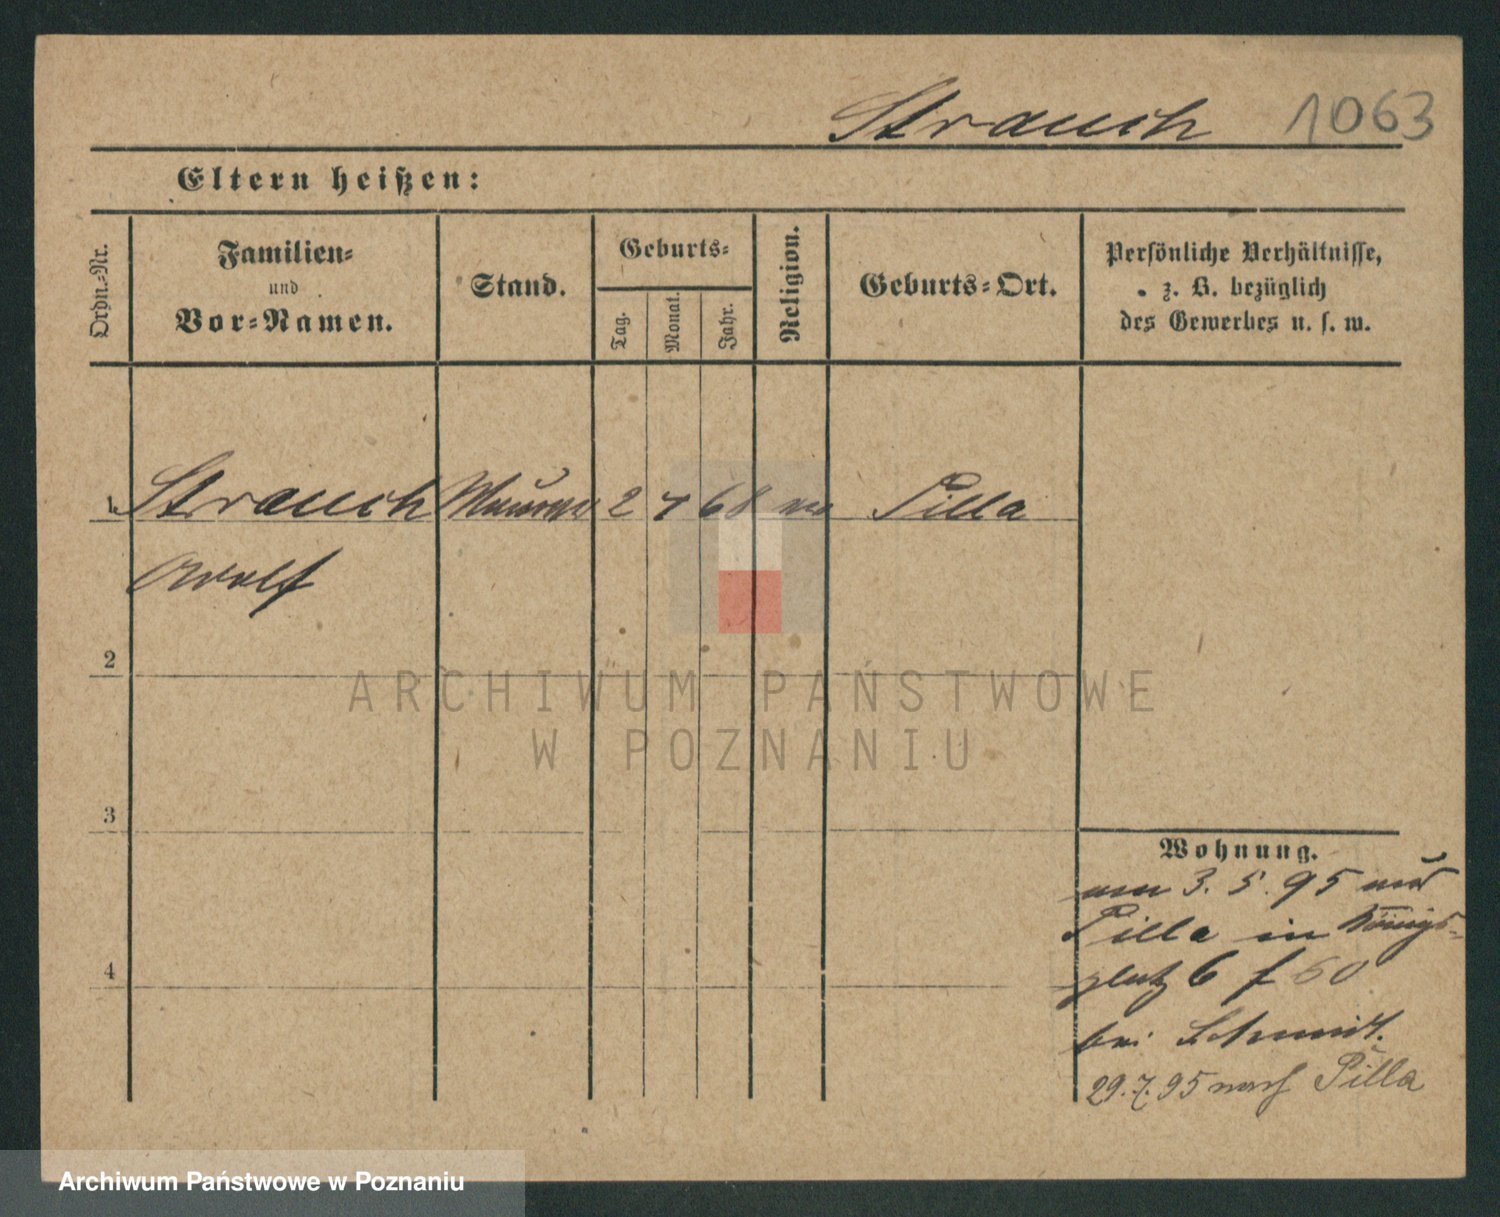 Strauch 1063
Eltern heißen:
Ordn.-Nr.
Familien-
und
Vor-Namen.
Stand.
Geburts-
Tag.
Monat.
Jahr.
Religion.
Geburts-Ort.
Persönliche Verhältnisse,
z. B. bezüglich
des Gewerbes u. s. w.
1 Strauch Maurer 2 4 68 Pilla
Adolf
2
3
4
Wohnung.
3. 5. 95
Pilla in Königs-
platz 6 f 60
bei Schmidt.
29.7.95 nach Pilla
ARCHIWUM PAŃSTWOWE
W POZNANIU
Archiwum Państwowe w Poznaniu